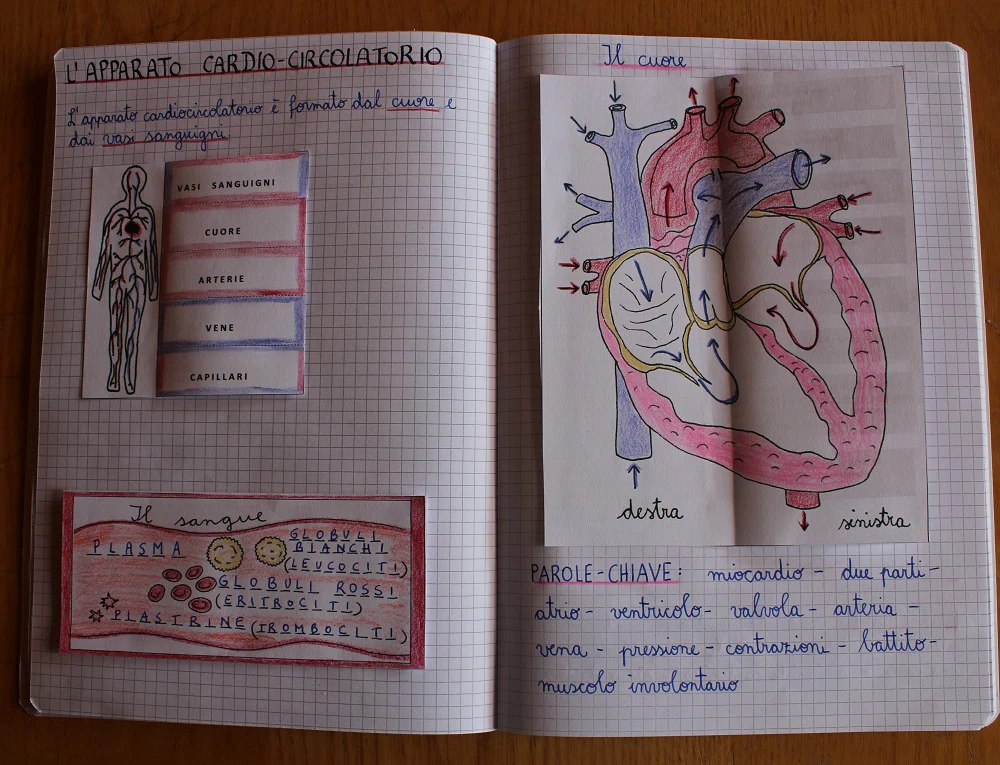 L'APPARATO CARDIO-CIRCOLATORIO
L'apparato cardiocircolatorio è formato dal cuore e
dai vasi sanguigni
VASI SANGUIGNI
CUORE
ARTERIE
VENE
CAPILLARI
Il sangue
PLASMA
GLOBULI
BIANCHI
(LEUCOCITI)
GLOBULI ROSSI
(ERITROCITI)
PIASTRINE (TROMBOCITI)
Il cuore
destra
sinistra
PAROLE-CHIAVE: miocardio - due parti -
atrio - ventricolo - valvola - arteria -
vena - pressione - contrazioni - battito -
muscolo involontario